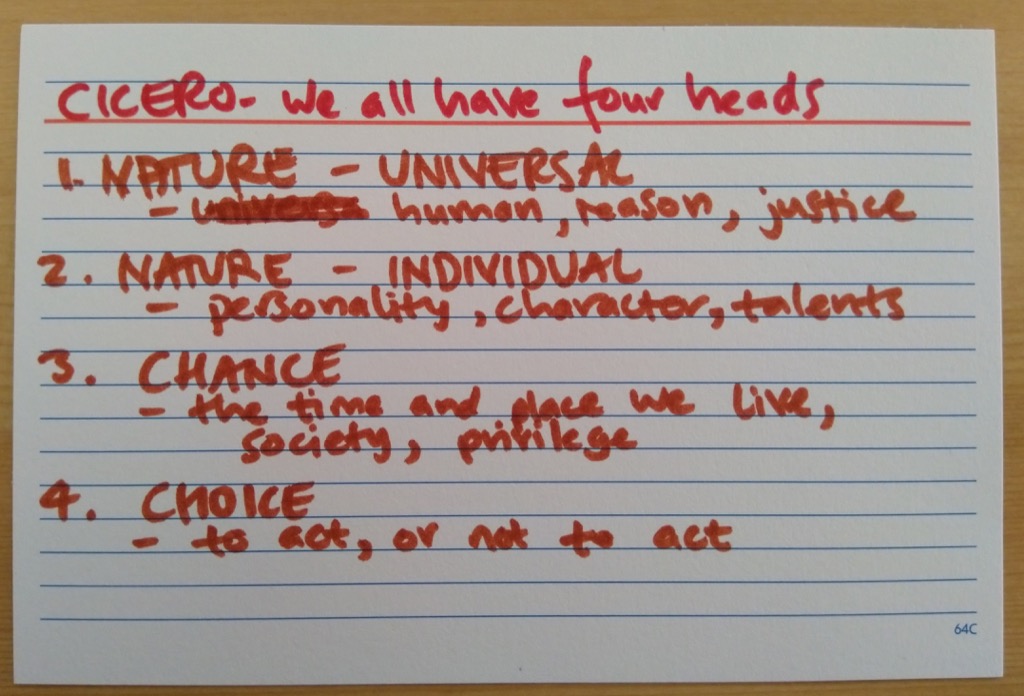 CICERO- we all have four heads
1. NATURE - UNIVERSAL
- human, reason, justice
2. NATURE - INDIVIDUAL
- personality, character, talents
3. CHANCE
- the time and place we live,
society, privilege
4. CHOICE
- to act, or not to act
64C